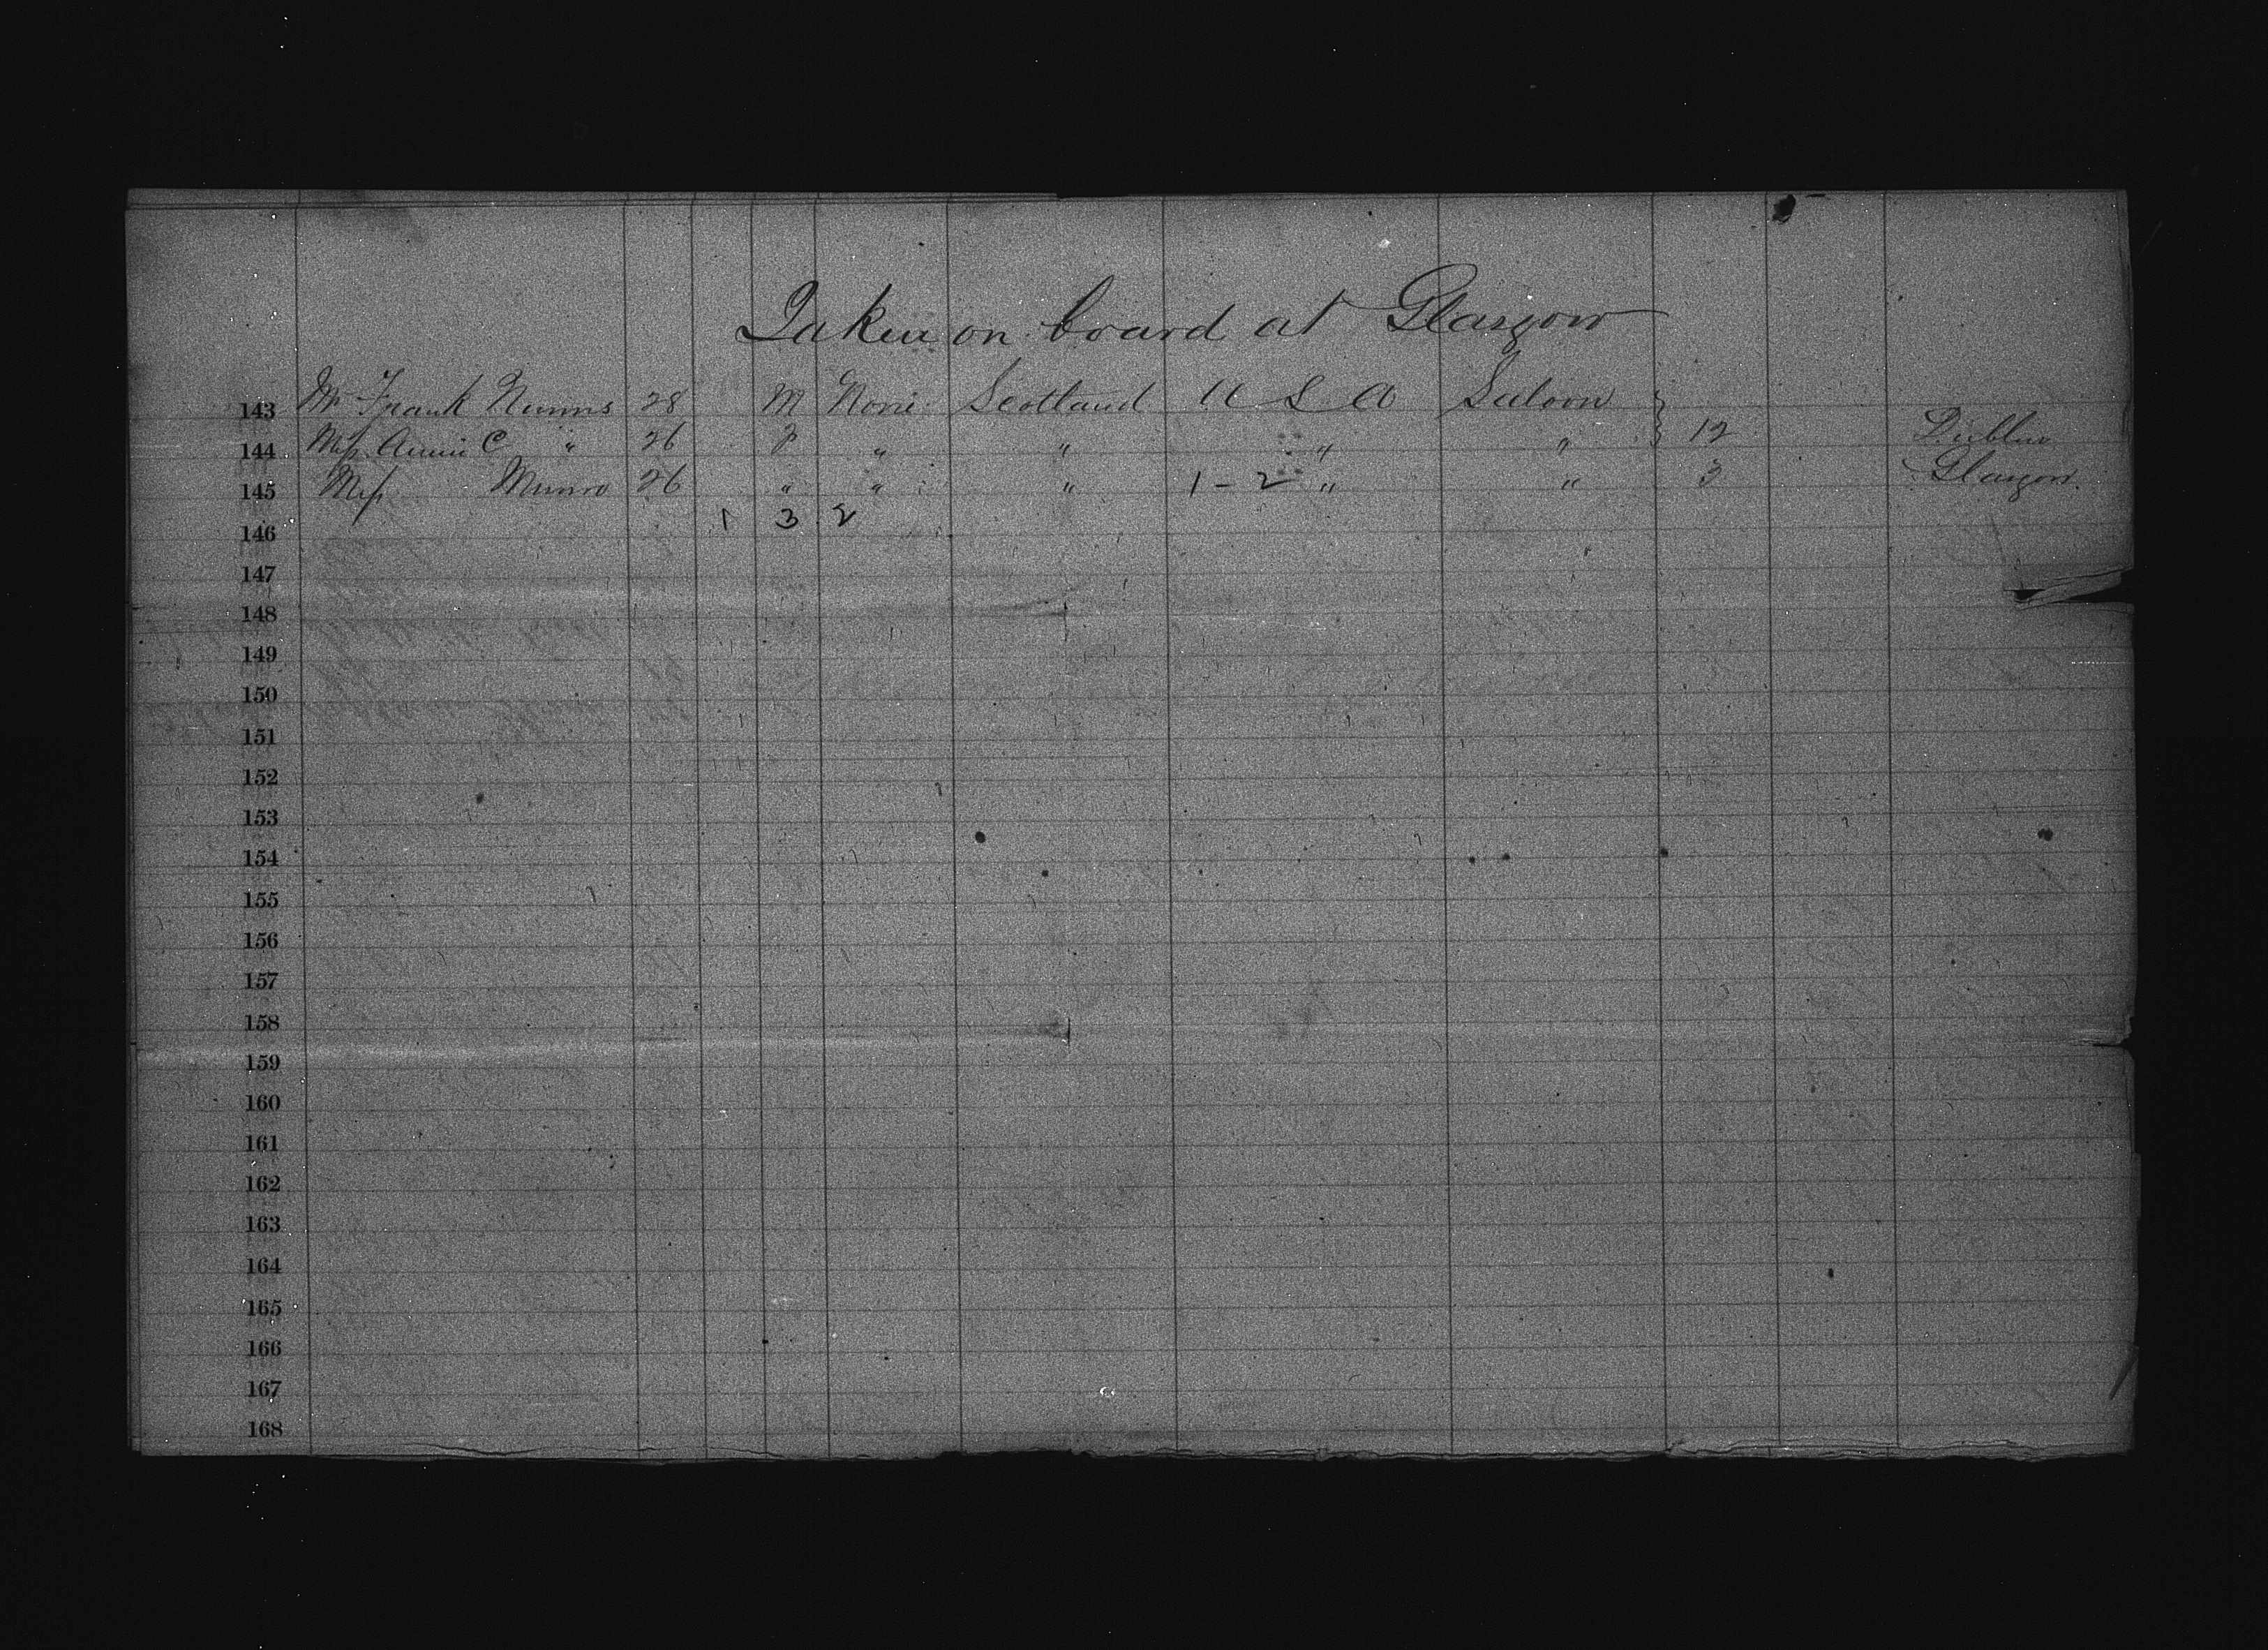 Taken on board at Glasgow
143 Mr Frank Nunns 28 M None Scotland U S A Saloon
144 Miss Annie C " 26 F " " " " 12 Dublin
145 Miss Munro 26 " " " 1 - 2 " " 3 Glasgow
1 3 2
146
147
148
149
150
151
152
153
154
155
156
157
158
159
160
161
162
163
164
165
166
167
168